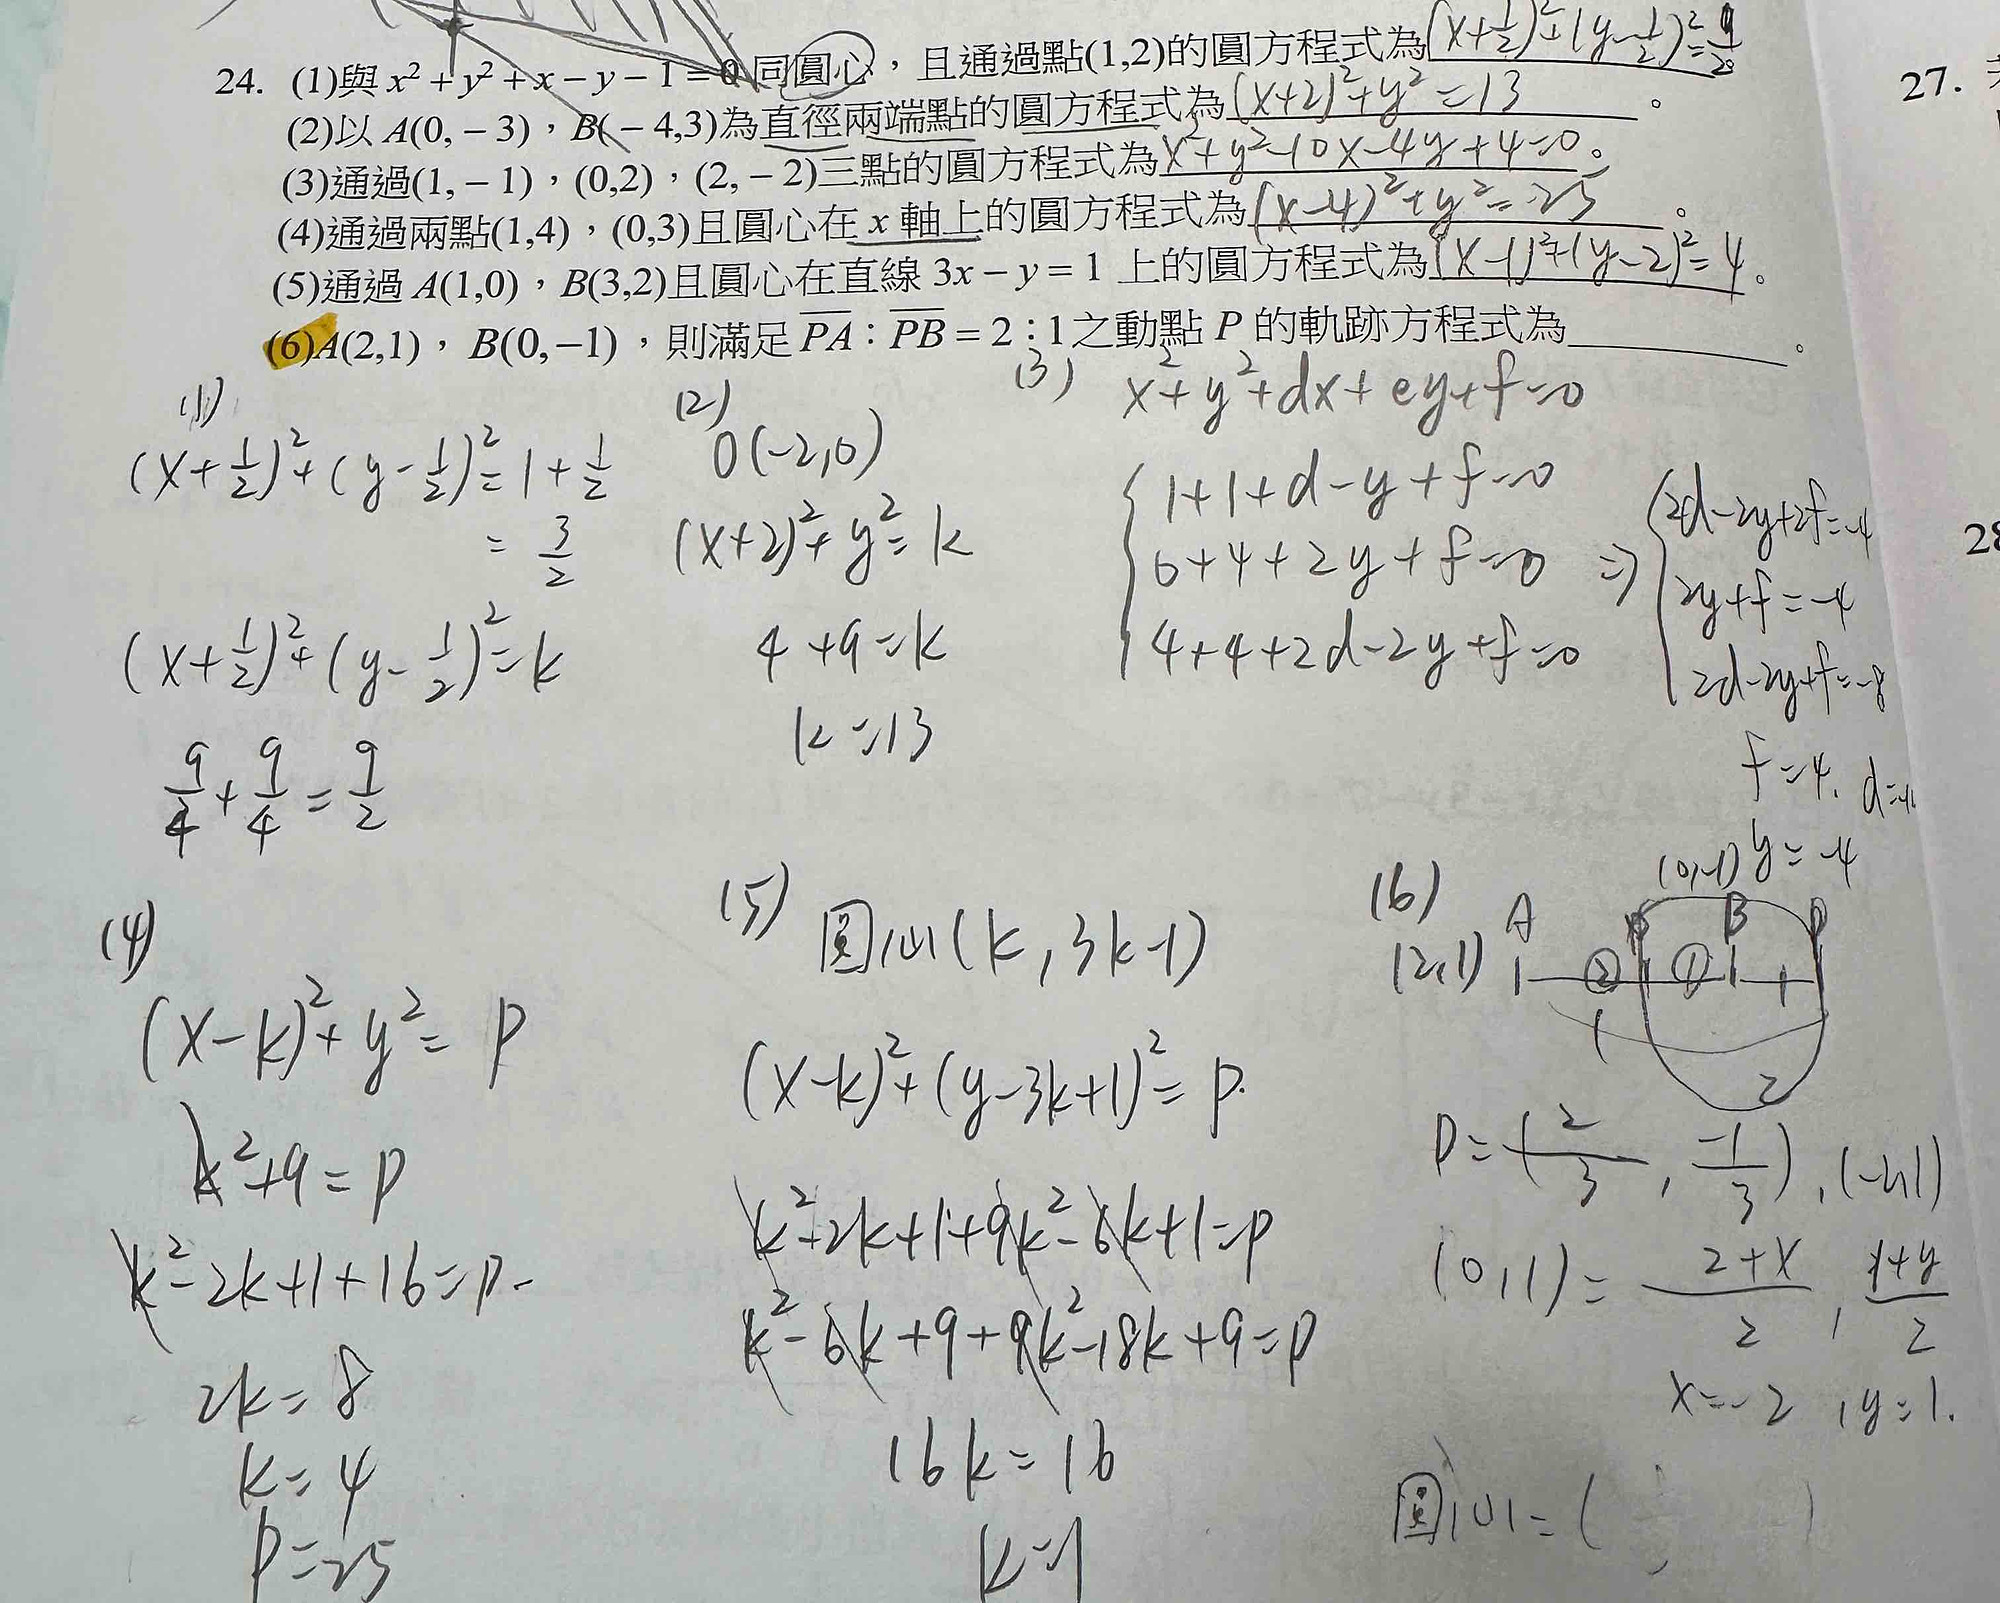 24. (1)與 x² + y² + x − y − 1 = 0 同圓心，且通過點(1,2)的圓方程式為 (x+1/2)²+(y-1/2)²=9/2。
(2)以 A(0, − 3)，B(− 4,3)為直徑兩端點的圓方程式為 (x+2)²+y²=13。
(3)通過(1, − 1)，(0,2)，(2, − 2)三點的圓方程式為 x²+y²-10x-4y+4=0。
(4)通過兩點(1,4)，(0,3)且圓心在 x 軸上的圓方程式為 (x-4)²+y²=25。
(5)通過 A(1,0)，B(3,2)且圓心在直線 3x − y = 1 上的圓方程式為 (x-1)²+(y-2)²=4。
(6)A(2,1)，B(0,−1)，則滿足 PA : PB = 2 : 1之動點 P 的軌跡方程式為。
27.
28
(1)
(x+1/2)²+(y-1/2)²=1+1/2
=3/2
(x+1/2)²+(y-1/2)²=k
9/4+9/4=9/2
(2)
O(-2,0)
(x+2)²+y²=k
4+9=k
k=13
(3)
x²+y²+dx+ey+f=0
1+1+d-y+f=0
0+4+2y+f=0
4+4+2d-2y+f=0
⇒
2d-2y+2f=-4
2y+f=-4
2d-2y+f=-8
f=4, d=
y=-4
(4)
(x-k)²+y²=p
k²+9=p
k²-2k+1+16=p
2k=8
k=4
p=25
(5) 圓心(k,3k-1)
(x-k)²+(y-3k+1)²=p
k²-2k+1+9k²-6k+1=p
k²-6k+9+9k²-18k+9=p
16k=16
k=1
(6)
(0,-1)
A P B P
(2,1) ② ① 1
1
2
P=(2/3, -1/3), (-2,1)
(0,1)=2+x/2, 1+y/2
x=-2, y=1.
圓心=( , )